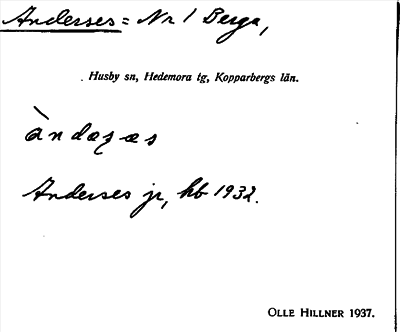 Anderses = Nr 1 Berga,
Husby sn, Hedemora tg, Kopparbergs län.
Anderses jr, hb 1932.
OLLE HILLNER 1937.